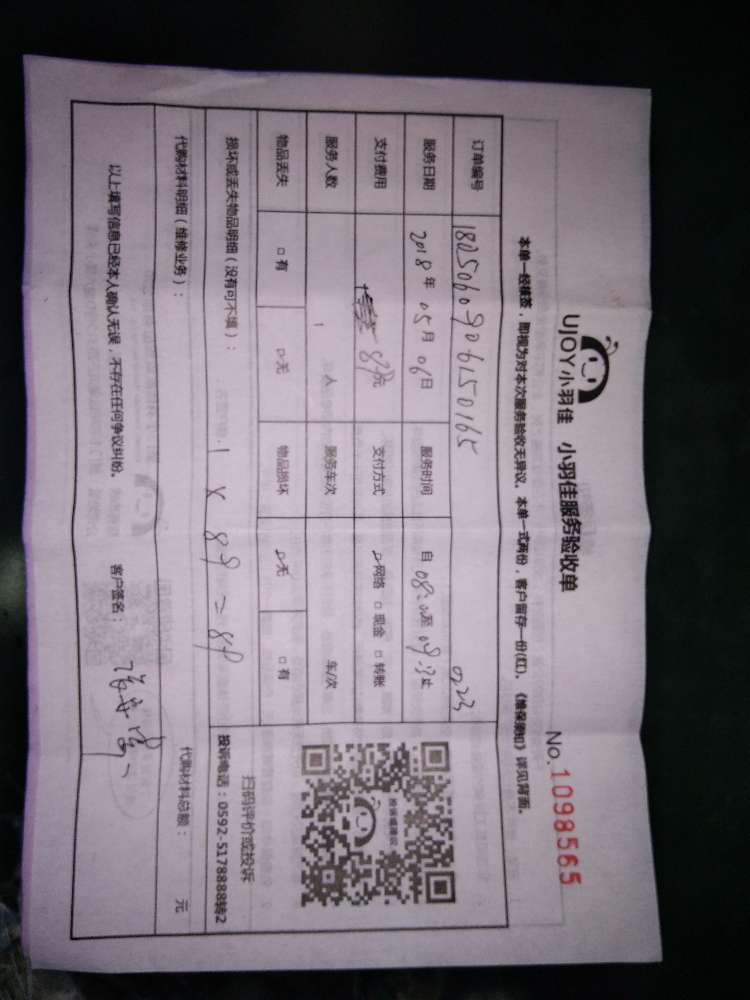 UJOY小羽佳 小羽佳服务验收单
No.1098565
本单一经核签，即视为对本次服务验收无异议。本单一式两份，客户留存一份(红)。《维保须知》详见背面。
订单编号 1805060906150165 0223
服务日期 2018年05月06日 服务时间 自08:00至09:
支付费用 89元 支付方式 网络 □现金 □转账
服务人数 1 人 服务车次 车/次
物品丢失 □有 □无 物品损坏 □无 □有
损坏或丢失物品明细（没有可不填）：
1×89=89
代购材料明细（维修业务）：
代购材料总额： 元
扫码评价或投诉
投诉电话：0592-5178888转2
投诉或建议
以上填写信息已经本人确认无误，不存在任何争议纠纷。 客户签名：